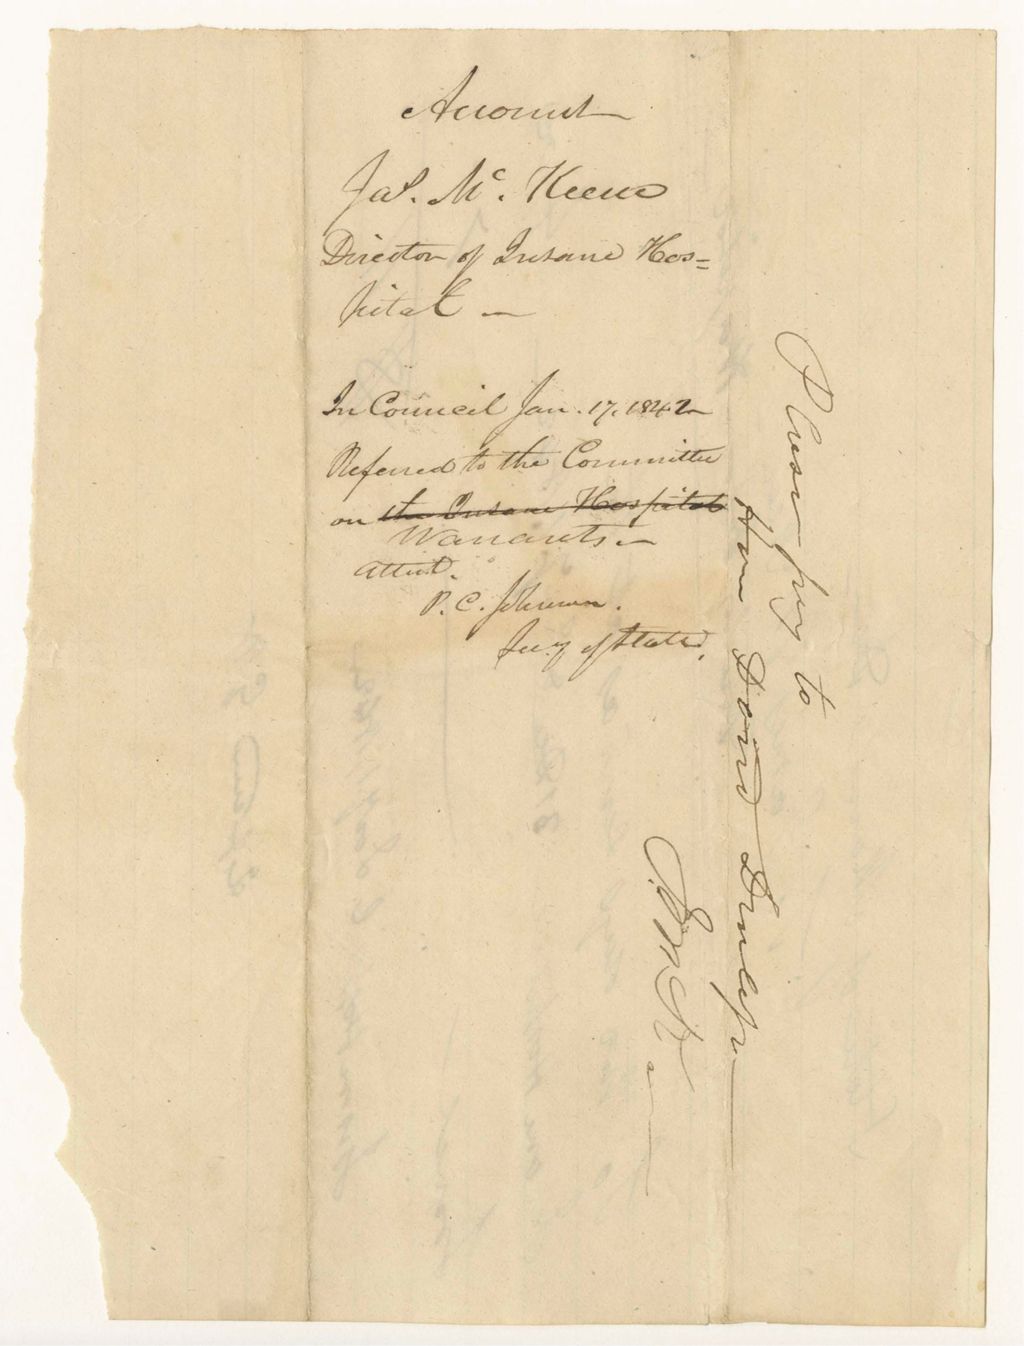 Account
Jas. Mc. Keene
Director of Insane Hos=
pital —
In Council Jan. 17. 1842
Referred to the Committee
on the Insane Hospital
Warrants. —
Attest.
P. C. Johnson.
Secy of State.
Please pay to
Hon David Dunlap —